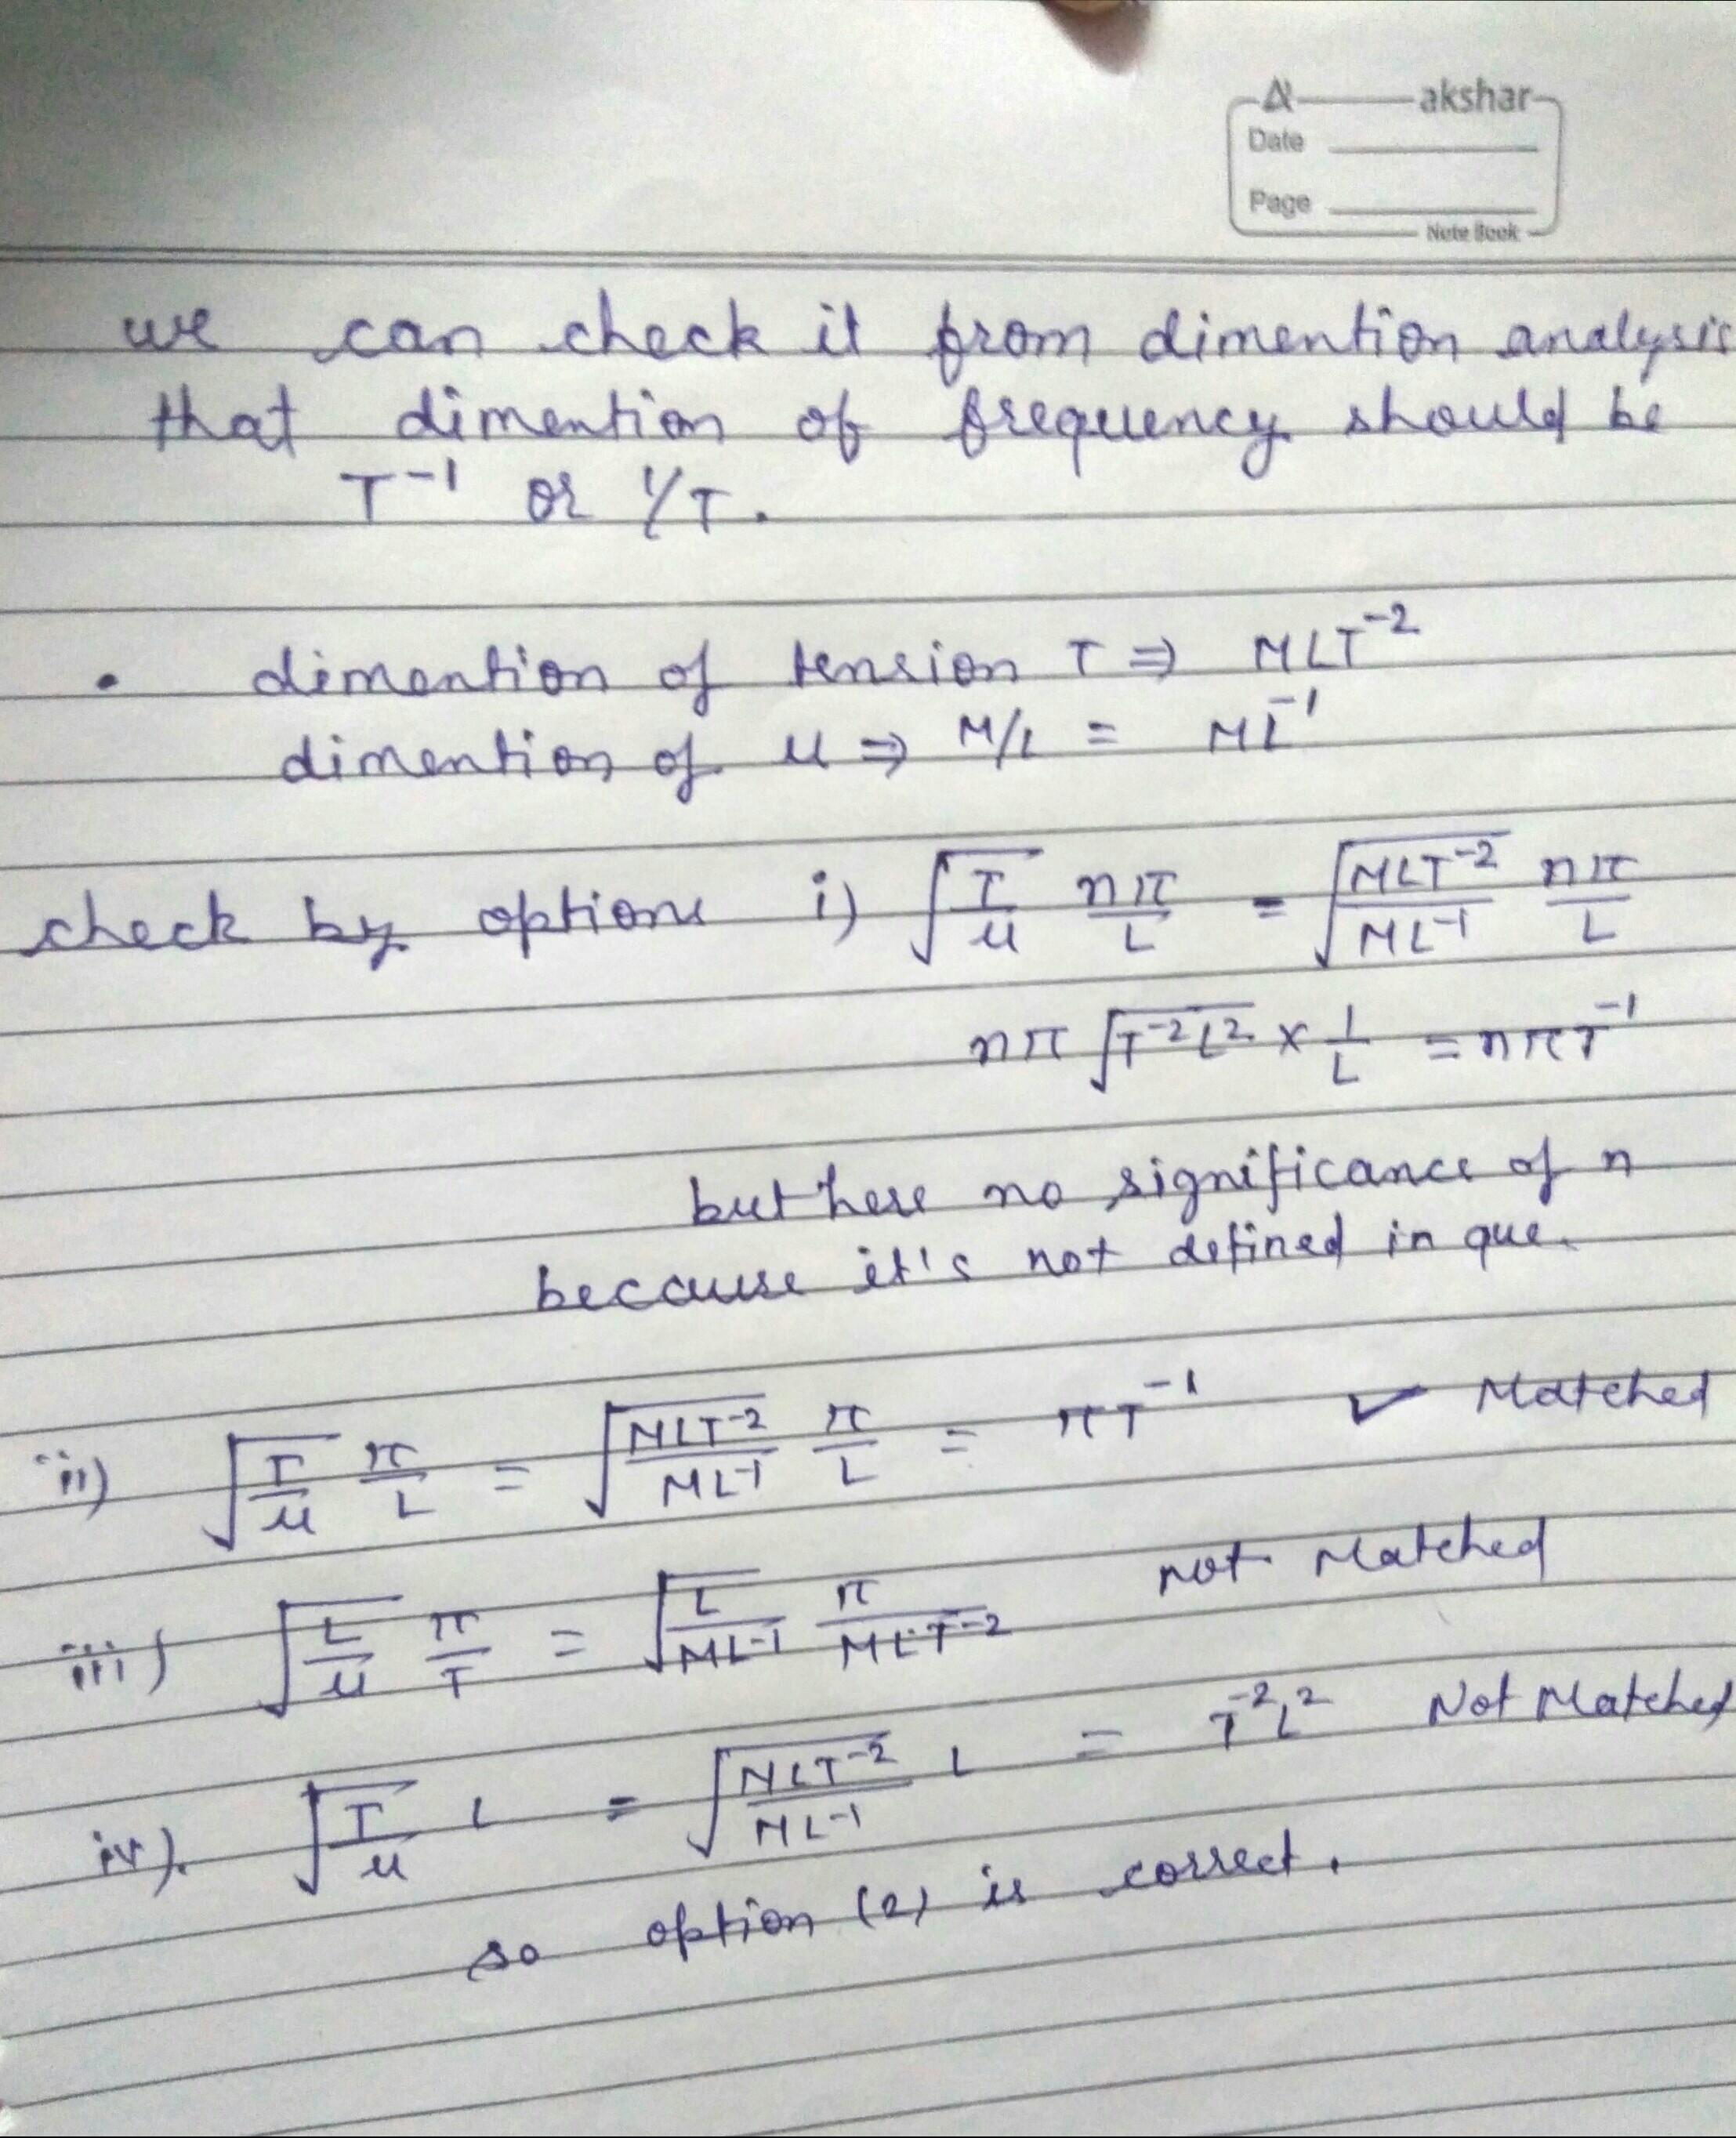 akshar
Date
Page
Note Book
we can check it from dimention analysis
that dimention of frequency should be
T⁻¹ or 1/T.
• dimention of tension T ⇒ MLT⁻²
dimention of μ ⇒ M/L = ML⁻¹
check by options i) √(T/μ) nπ/L = √(MLT⁻²/ML⁻¹) nπ/L
nπ √(T⁻²L²) × 1/L = nπT⁻¹
but here no significance of n
because it's not defined in que.
ii) √(T/μ) π/L = √(MLT⁻²/ML⁻¹) π/L = πT⁻¹ ✓ Matched
iii) √(L/μ) π/T = √(L/ML⁻¹) π/MLT⁻² not Matched
iv). √(T/μ) L = √(MLT⁻²/ML⁻¹) L = T⁻²L² Not Matched
so option (2) is correct.